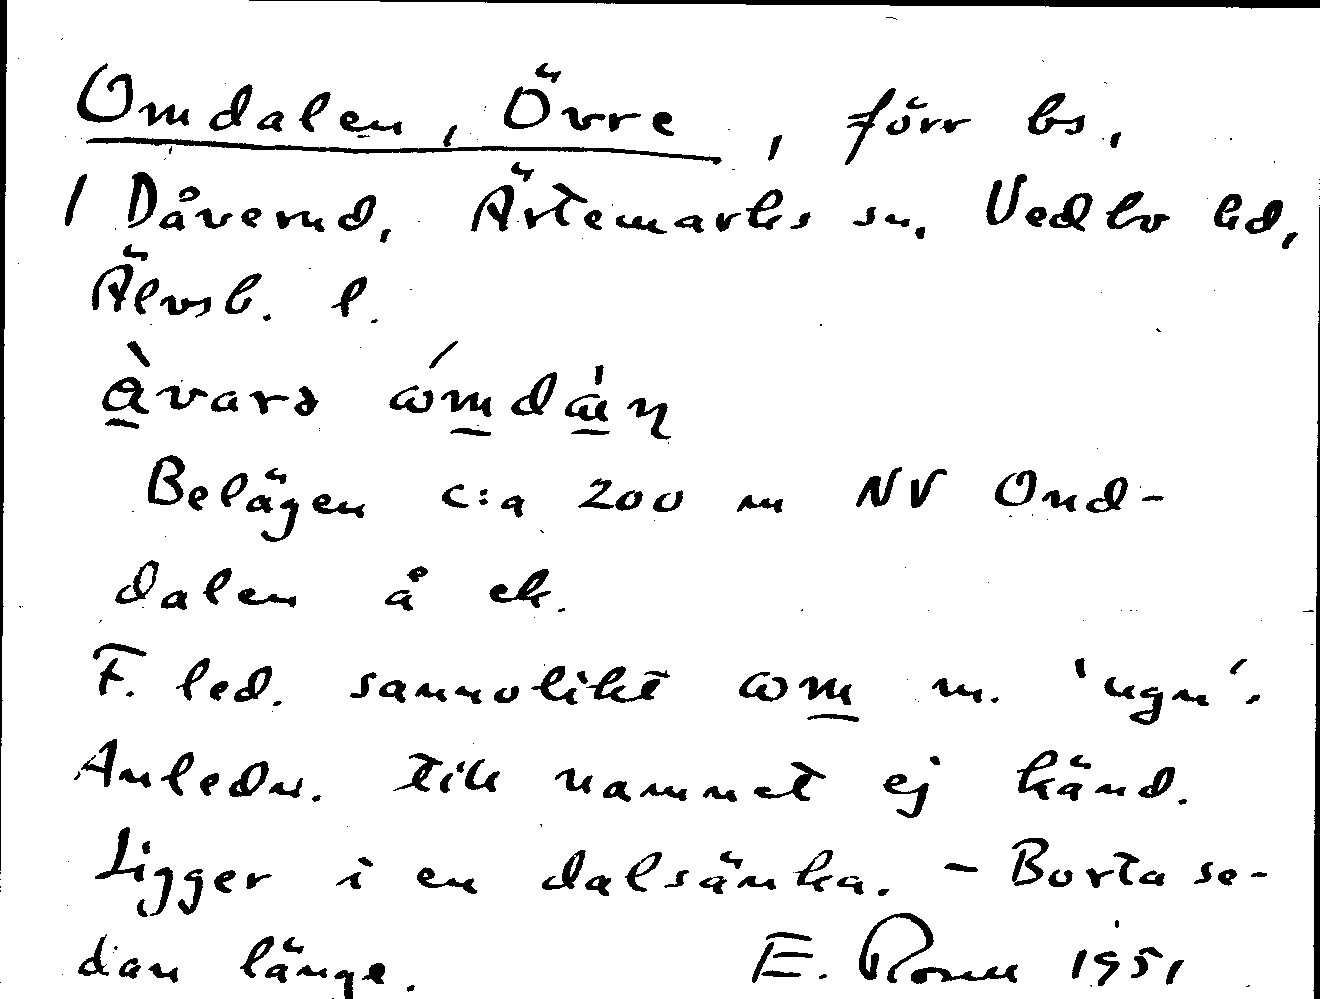 Omdalen, Övre, förr bs,
/ Dåverud, Ärtemarks sn, Vedbo hd,
Älvsb. l.
àvarə ómdàn
Belägen c:a 200 m NV Ond-
dalen å ek.
F. led. sannolikt ωm m. 'ugn'.
Anledn. till namnet ej känd.
Ligger i en dalsänka. - Borta se-
dan länge. E. 1951